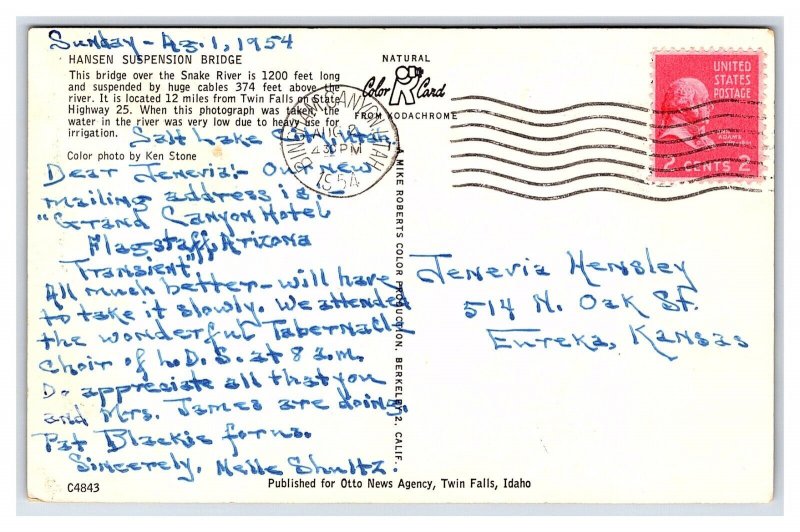 Sunday - Ag. 1, 1954
HANSEN SUSPENSION BRIDGE
This bridge over the Snake River is 1200 feet long
and suspended by huge cables 374 feet above the
river. It is located 12 miles from Twin Falls on State
Highway 25. When this photograph was taken the
water in the river was very low due to heavy use for
irrigation.
Salt Lake City, Utah
Color photo by Ken Stone
Dear Jenevia:- Our new
mailing address is:
"Grand Canyon Hotel
Flagstaff, Arizona
Transient"
All much better - will have
to take it slowly. We attended
the wonderful Tabernacle
Choir of L.D.S. at 8 a.m.
Do appreciate all that you
and Mrs. James are doing.
Pat Blackie for us.
Sincerely, Nelle Shultz.
C4843
NATURAL
Color Card
FROM KODACHROME
BINGHAM CANYON, UTAH
AUG 2
4 30 PM
1954
A MIKE ROBERTS COLOR PRODUCTION, BERKELEY 2, CALIF.
UNITED
STATES
POSTAGE
2 CENTS 2
Jenevia Hensley
514 N. Oak St.
Eureka, Kansas
Published for Otto News Agency, Twin Falls, Idaho